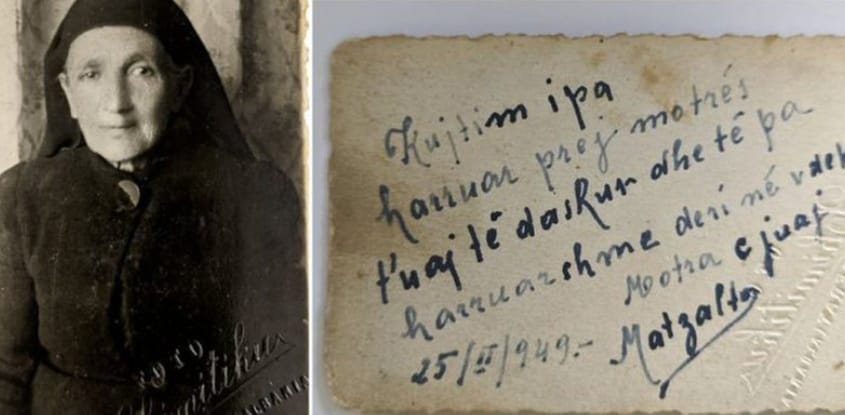 Kujtim i pa
harruar prej motrës
t'uaj të daskur dhe të pa
harruarshme deri në vdek
Motra e juaj
25/II/949.- Matzalta
FOTO